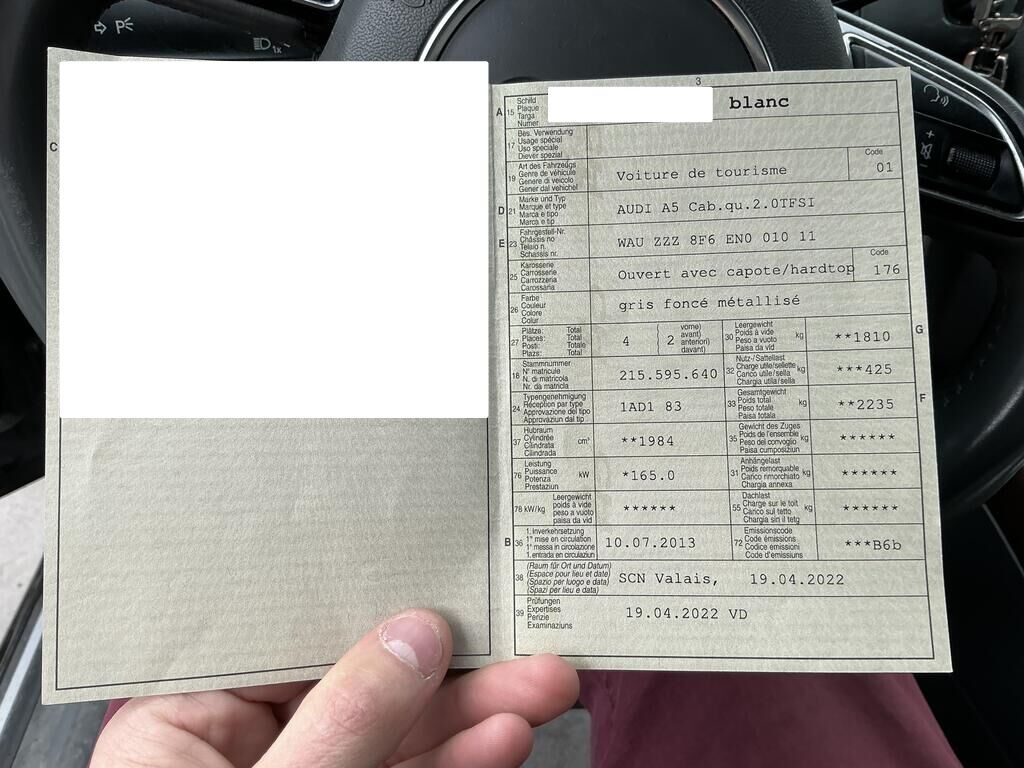 P
1x
C
3
A 15 Schild
Plaque
Targa
Numer
blanc
17 Bes. Verwendung
Usage spécial
Uso speciale
Diever spezial
19 Art des Fahrzeugs
Genre de véhicule
Genere di veicolo
Gener dal vehichel
Voiture de tourisme
Code
01
D 21 Marke und Typ
Marque et type
Marca e tipo
Marca e tip
AUDI A5 Cab.qu.2.0TFSI
E 23 Fahrgestell-Nr.
Châssis no
Telaio n.
Schassis nr.
WAU ZZZ 8F6 EN0 010 11
25 Karosserie
Carrosserie
Carrozzeria
Carossaria
Ouvert avec capote/hardtop
Code
176
26 Farbe
Couleur
Colore
Colur
gris foncé métallisé
27 Plätze: Total
Places: Total
Posti: Totale
Plazs: Total
4 ( 2 vorne)
avant)
anteriori)
davant)
30 Leergewicht
Poids à vide
Peso a vuoto
Paisa da vid
kg
**1810
G
18 Stammnummer
N° matricule
N. di matricola
Nr. da matricla
215.595.640
32 Nutz-/Sattellast
Charge utile/sellette
Carico utile/sella
Chargia utila/sella
kg
***425
24 Typengenehmigung
Réception par type
Approvazione del tipo
Approvaziun dal tip
1AD1 83
33 Gesamtgewicht
Poids total
Peso totale
Paisa totala
kg
**2235
F
37 Hubraum
Cylindrée
Cilindrata
Cilindrada
cm³
**1984
35 Gewicht des Zuges
Poids de l'ensemble
Peso del convoglio
Paisa cumposiziun
kg
******
76 Leistung
Puissance
Potenza
Prestaziun
kW
*165.0
31 Anhängelast
Poids remorquable
Carico rimorchiato
Chargia annexa
kg
******
78 kW/kg Leergewicht
poids à vide
peso a vuoto
paisa da vid
******
55 Dachlast
Charge sur le toit
Carico sul tetto
Chargia sin il tetg
kg
******
B 36 1. Inverkehrsetzung
1re mise en circulation
1a messa in circolazione
1. entrada en circulaziun
10.07.2013
72 Emissionscode
Code émissions
Codice emissioni
Code d'emissiuns
***B6b
38 (Raum für Ort und Datum)
(Espace pour lieu et date)
(Spazio per luogo e data)
(Spazi per lieu e data)
SCN Valais, 19.04.2022
39 Prüfungen
Expertises
Perizie
Examinaziuns
19.04.2022 VD